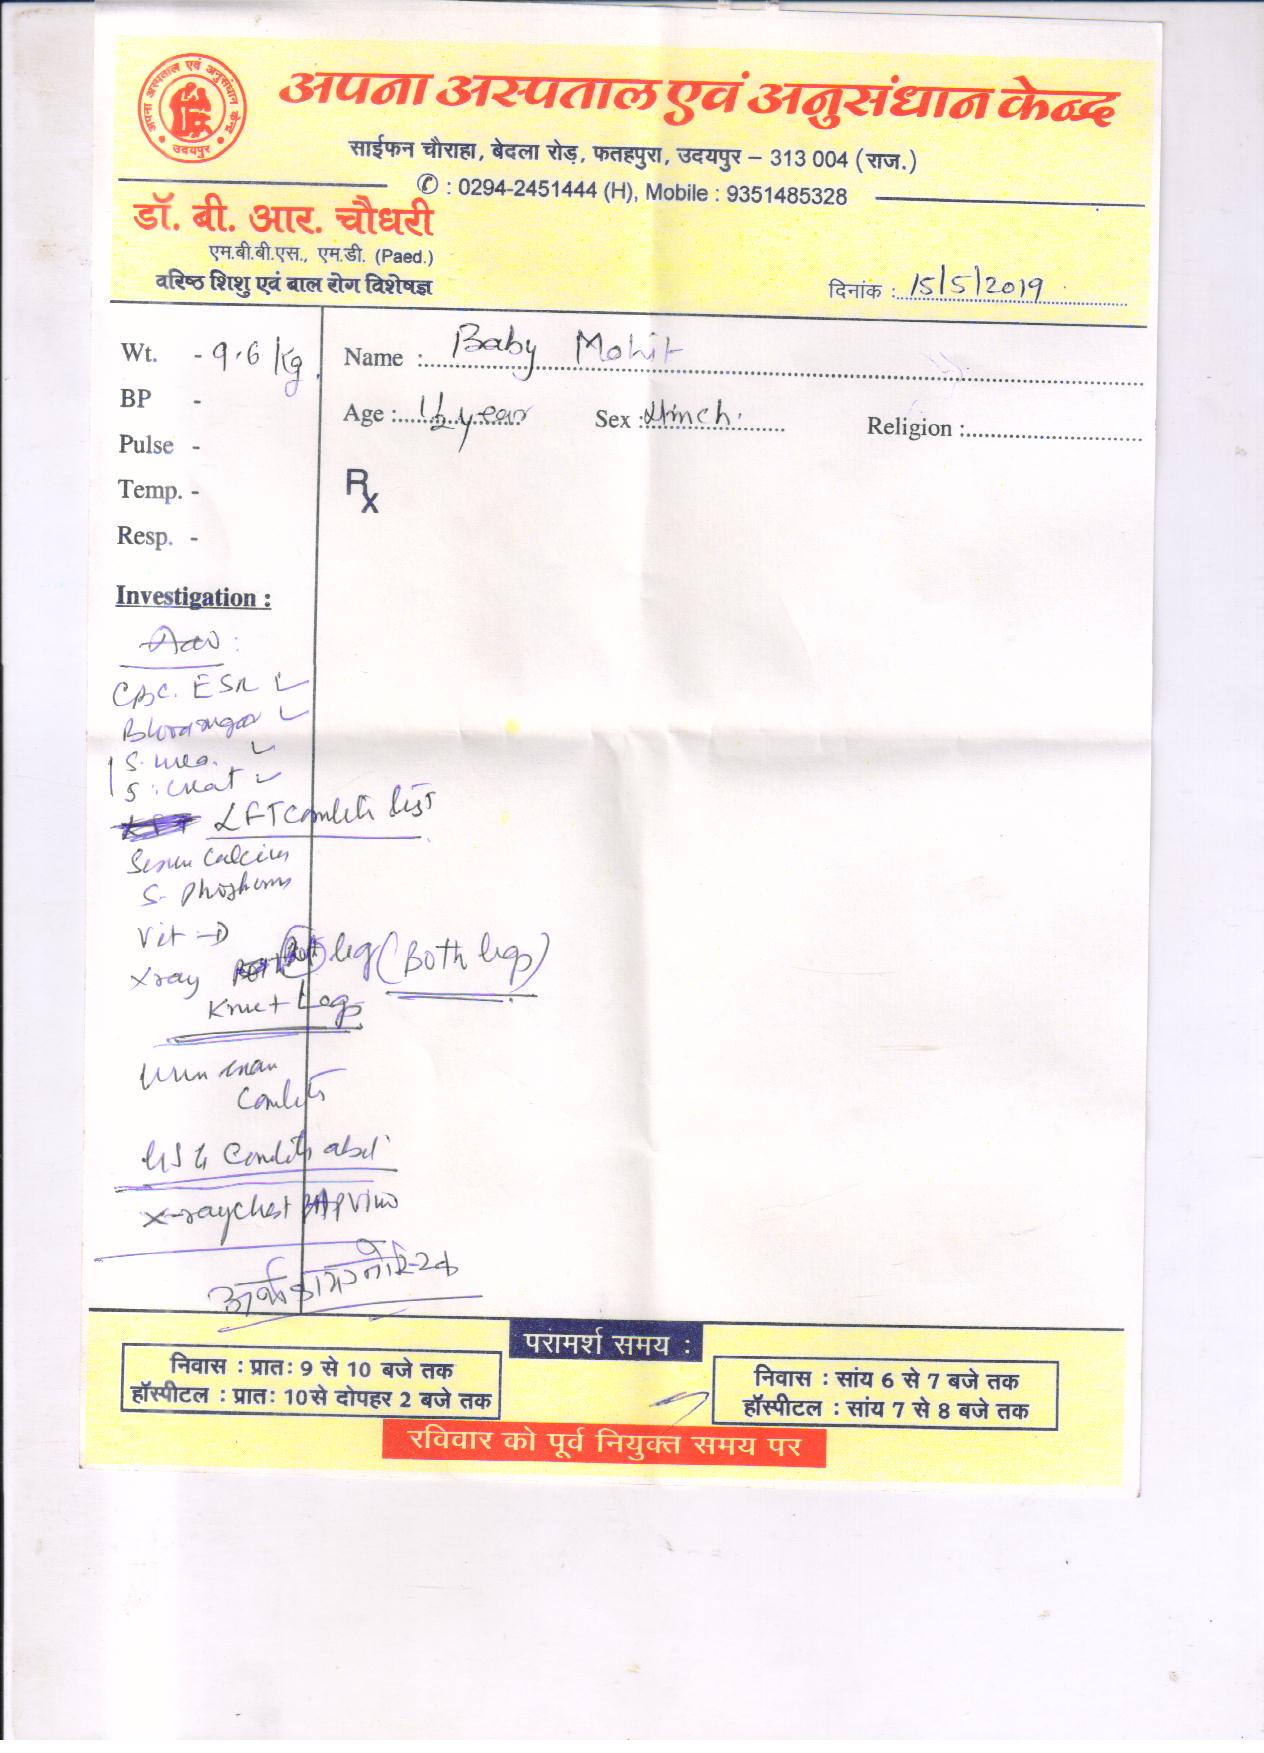 अपना अस्पताल एवं अनुसंधान केन्द्र
उदयपुर
अपना अस्पताल एवं अनुसंधान केन्द्र
साईफन चौराहा, बेदला रोड़, फतहपुरा, उदयपुर – 313 004 (राज.)
✆ : 0294-2451444 (H), Mobile : 9351485328
डॉ. बी. आर. चौधरी
एम.बी.बी.एस., एम.डी. (Paed.)
वरिष्ठ शिशु एवं बाल रोग विशेषज्ञ
दिनांक : 15/5/2019
Wt. - 9.6 Kg
Name : Baby Mohit
BP -
Age : 1½ year Sex : Religion :
Pulse -
Temp. -
Rx
Resp. -
Investigation :
CBC. ESR
Bloodsugar
S. urea.
S. creat
LFT
Serum Calcium
S. Phosphorus
Vit - D
Xray leg (Both legs)
Knee + Legs
Urine
USG
X-ray Chest AP View
परामर्श समय :
निवास : प्रातः 9 से 10 बजे तक
हॉस्पीटल : प्रातः 10 से दोपहर 2 बजे तक
निवास : सांय 6 से 7 बजे तक
हॉस्पीटल : सांय 7 से 8 बजे तक
रविवार को पूर्व नियुक्त समय पर